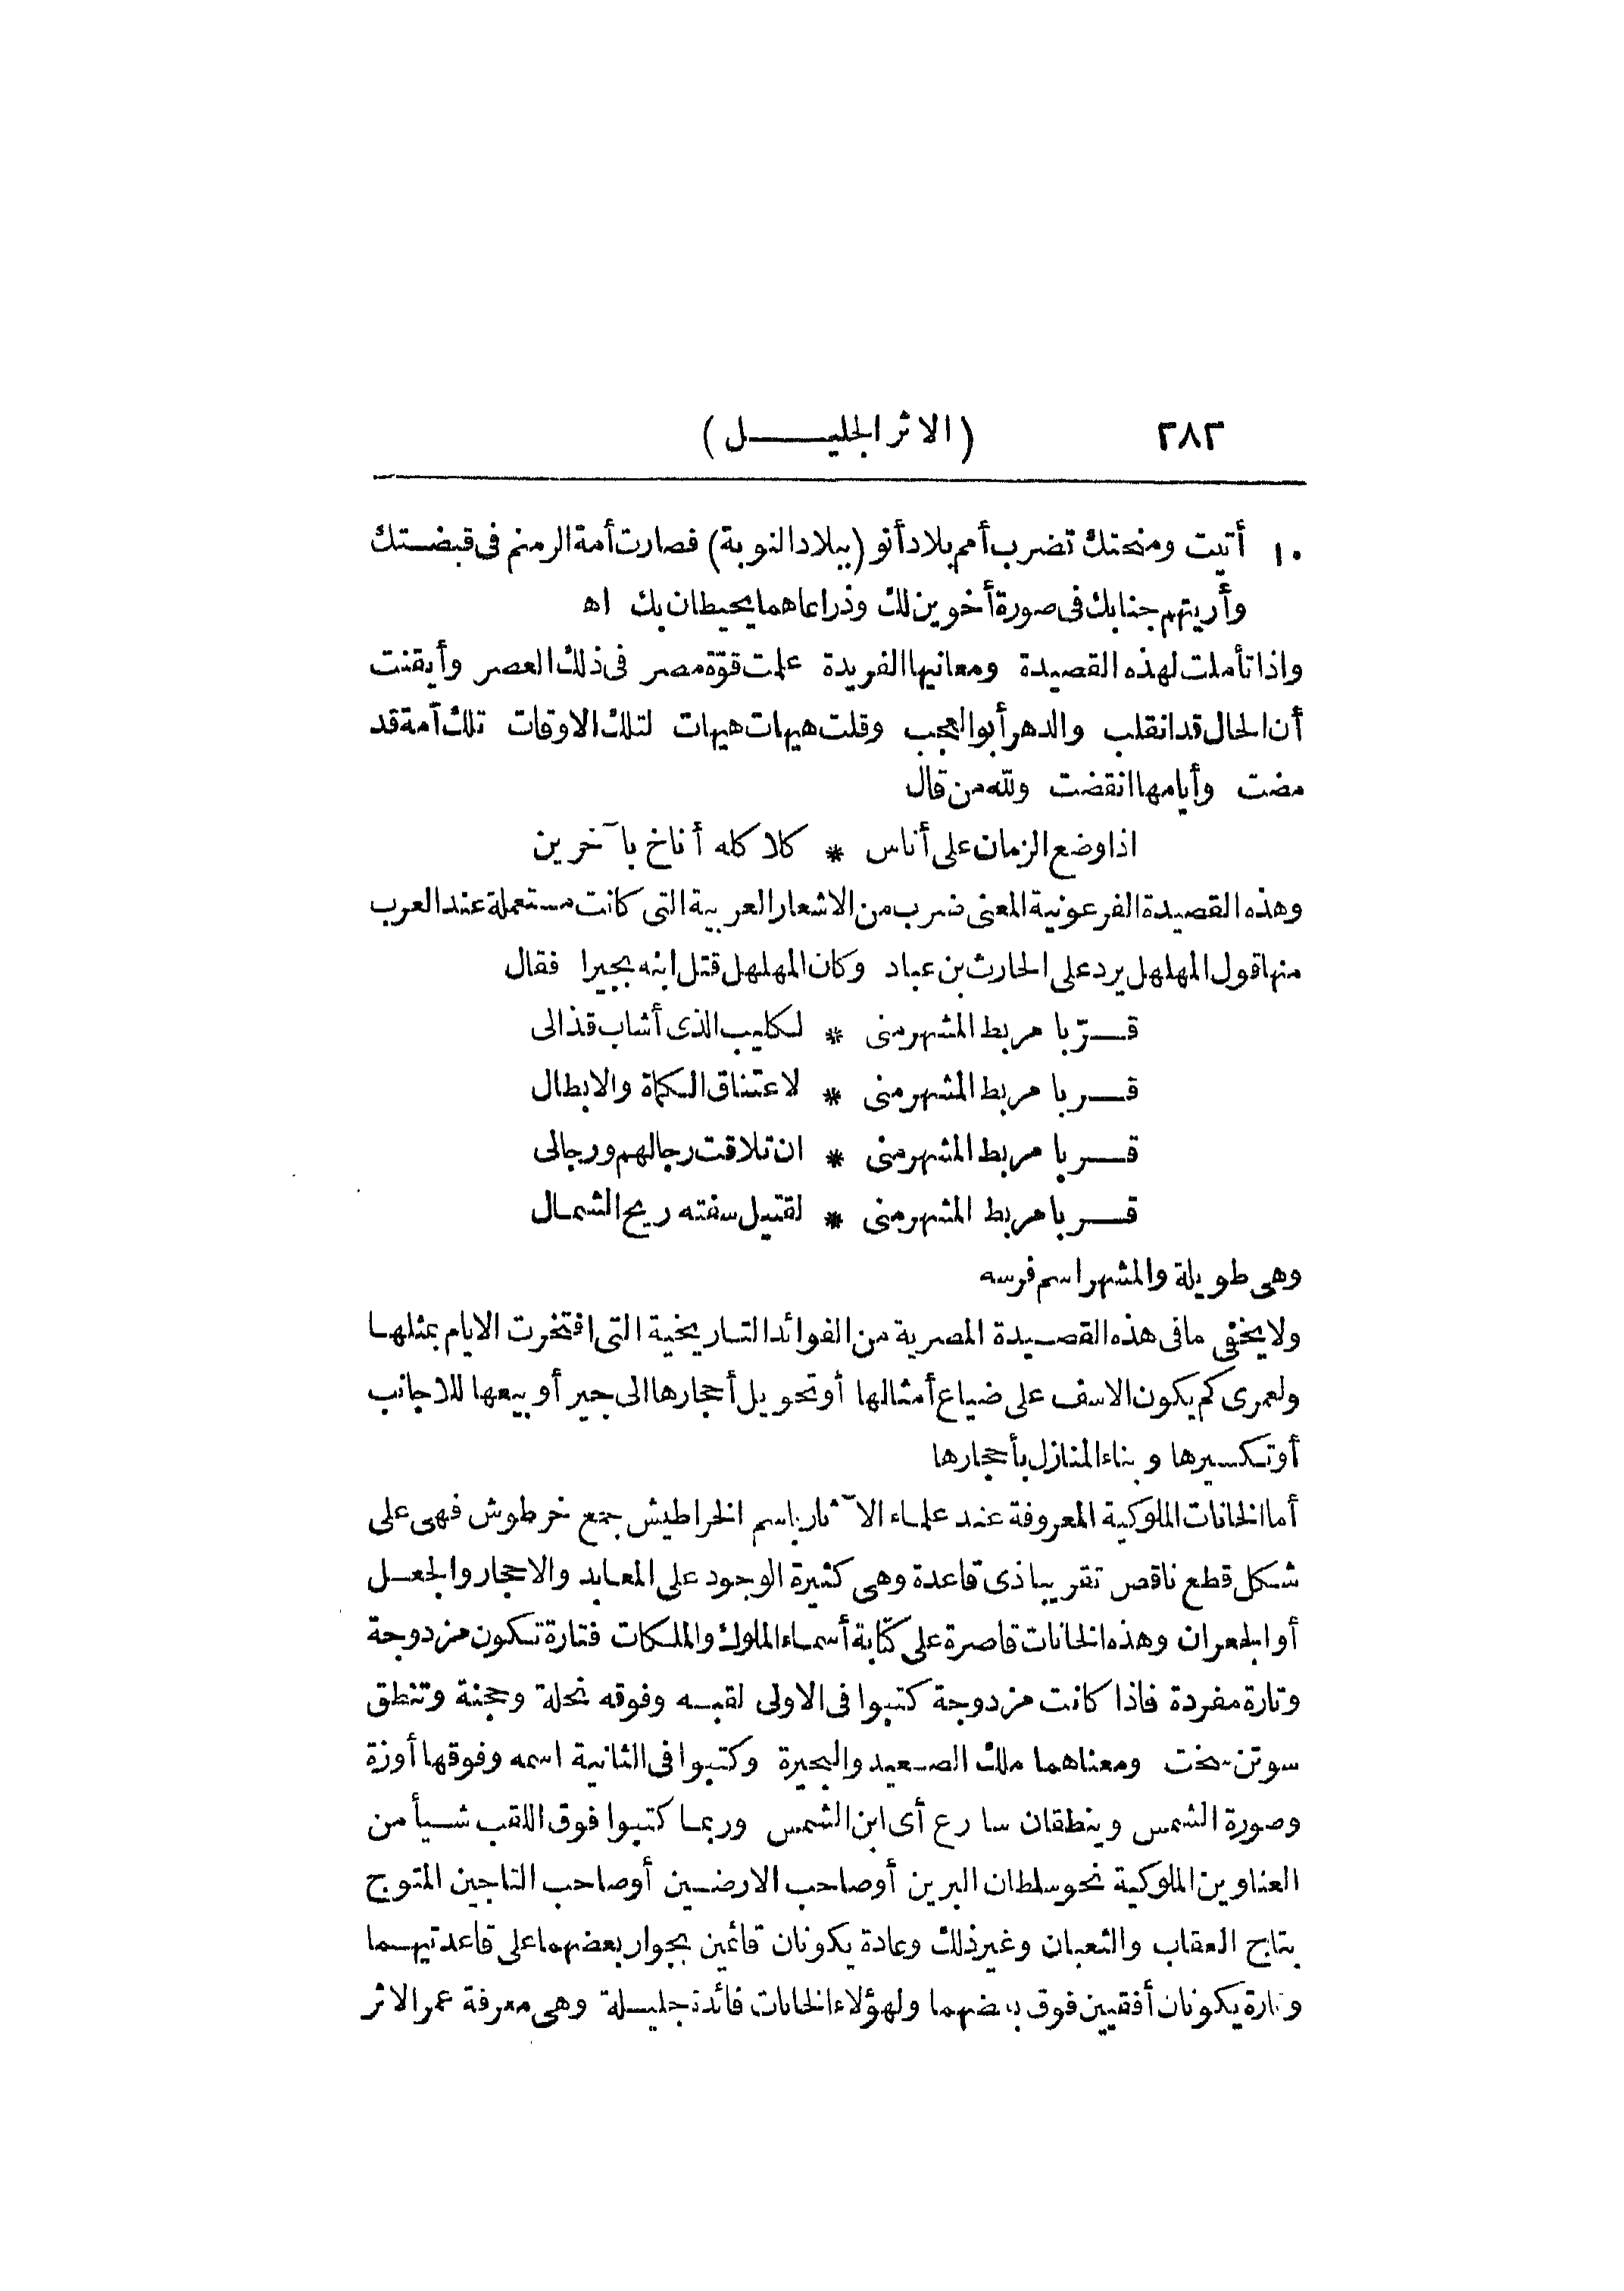 ٢٨٢ (الاثر الجليل)
١٠ أتيت ومنحتك تضرب أمم بلاد أنو (ببلاد النوبة) فصارت أمة الرمنم فى قبضتك
وأريتهم جنابك فى صورة أخوين لك وذراعاهما يحيطان بك اه
واذا تأملت لهذه القصيدة ومعانيها الفريدة علمت قوّة مصر فى ذلك العصر وأيقنت
أن الحال قد انقلب والدهر أبو العجب وقلت هيهات هيهات لتلك الاوقات تلك أمة قد
مضت وأيامها انقضت ولله من قال
اذا وضع الزمان على أناس * كلا كله أناخ بآخرين
وهذه القصيدة الفرعونية المعنى ضرب من الاشعار العربية التى كانت مستعملة عند العرب
منها قول المهلهل يرد على الحارث بن عباد وكان المهلهل قتل ابنه بجيرا فقال
قرّبا مربط المشهر منى * لكليب الذى أشاب قذالى
قربا مربط المشهر منى * لاعتناق الكماة والابطال
قربا مربط المشهر منى * ان تلاقت رجالهم ورجالى
قربا مربط المشهر منى * لقتيل سفته ريح الشمال
وهى طويلة والمشهر اسم فرسه
ولا يخفى ما فى هذه القصيدة المصرية من الفوائد التاريخية التى افتخرت الايام بمثلها
ولعمرى كم يكون الاسف على ضياع أمثالها أو تحويل أحجارها الى جير أو بيعها للاجانب
أو تكسيرها وبناء المنازل بأحجارها
أما الخانات الملوكية المعروفة عند علماء الآثار باسم الخراطيش جمع خرطوش فهى على
شكل قطع ناقص تقريبا ذى قاعدة وهى كثيرة الوجود على المعابد والاحجار والجعل
أو الجعران وهذه الخانات قاصرة على كتابة أسماء الملوك والملكات فتارة تكون مزدوجة
وتارة مفردة فاذا كانت مزدوجة كتبوا فى الاولى لقبه وفوقه نحلة وحجنة وتنطق
سوتن سخت ومعناهما ملك الصعيد والبحيرة وكتبوا فى الثانية اسمه وفوقها أوزة
وصورة الشمس وينطقان سا رع أى ابن الشمس وربما كتبوا فوق اللقب شيأ من
العناوين الملوكية نحو سلطان البرين أو صاحب الارضين أو صاحب التاجين المتوج
بتاج العقاب والثعبان وغير ذلك وعادة يكونان قائمين بجوار بعضهما على قاعدتيهما
وتارة يكونان أفقيين فوق بعضهما ولهؤلاء الخانات فائدة جليلة وهى معرفة عمر الاثر